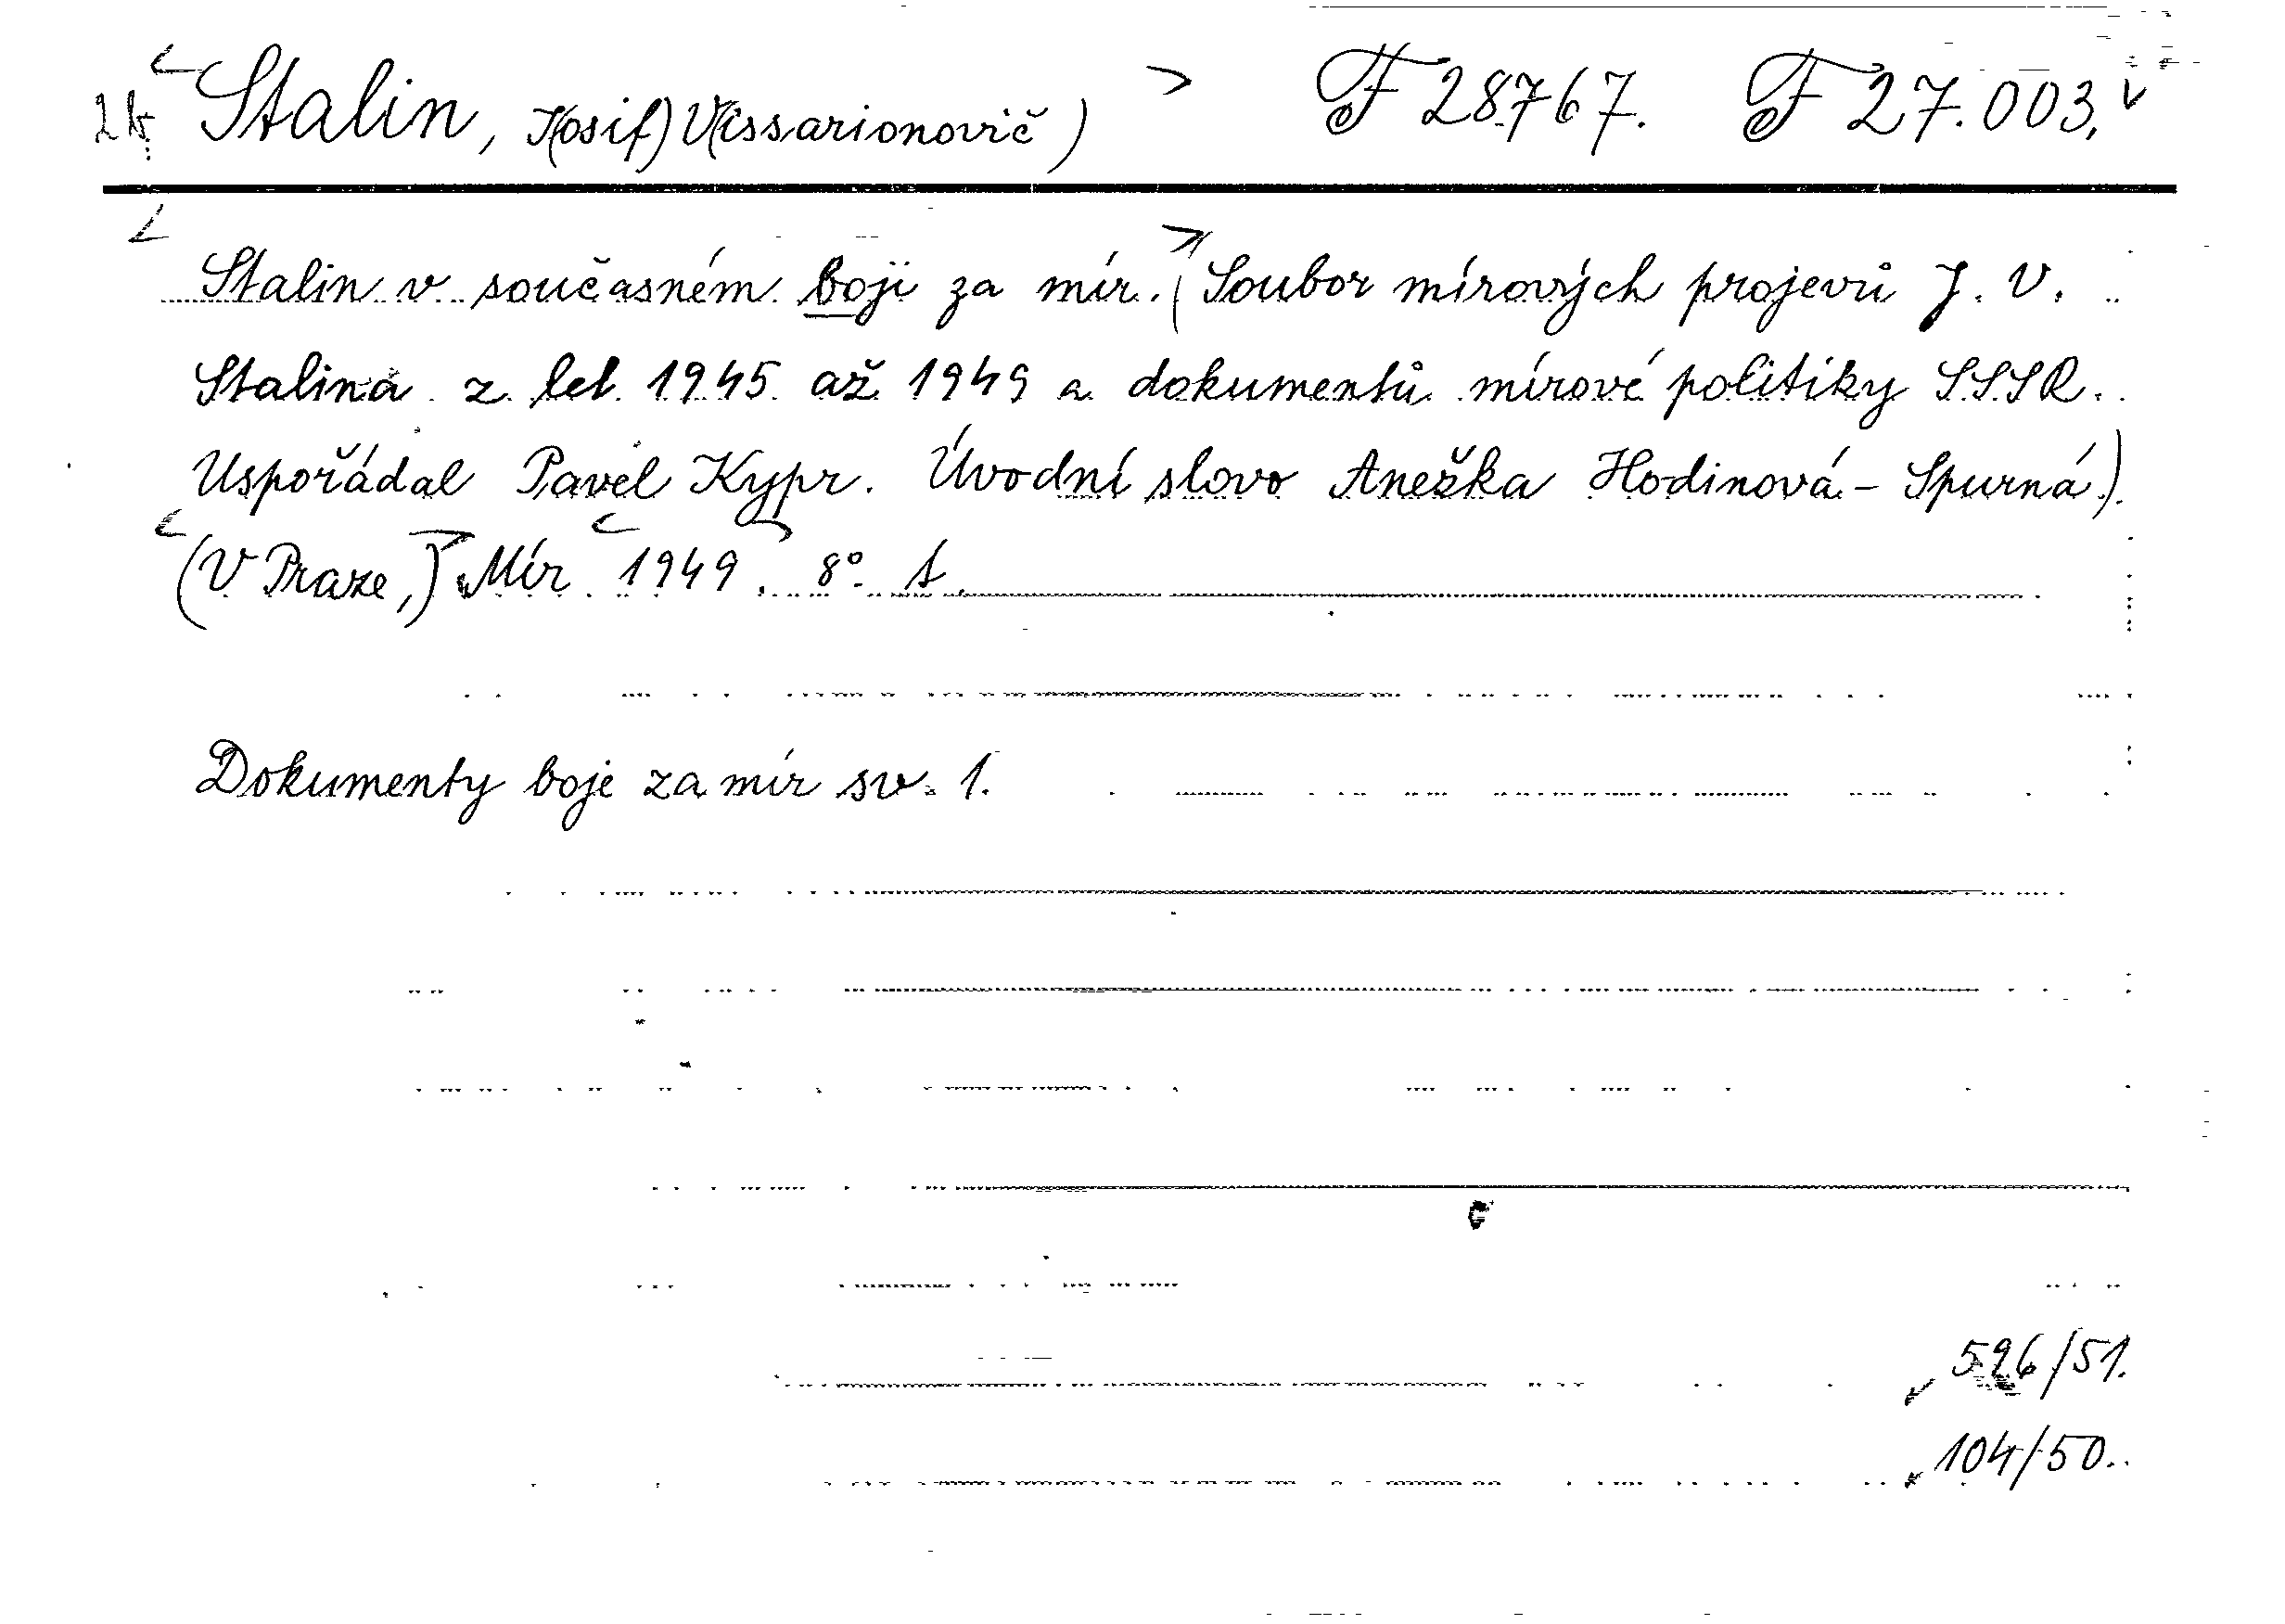 2k. Stalin, J(osif) V(issarionovič) F 28767. F 27.003.
Stalin v současném boji za mír. (Soubor mírových projevů J. V.
Stalina z let 1945 až 1949 a dokumentů mírové politiky SSSR.
Uspořádal Pavel Kypr. Úvodní slovo Anežka Hodinová-Spurná).
(V Praze,) Mír 1949. 8°. s.
Dokumenty boje za mír sv. 1.
526/51.
104/50.